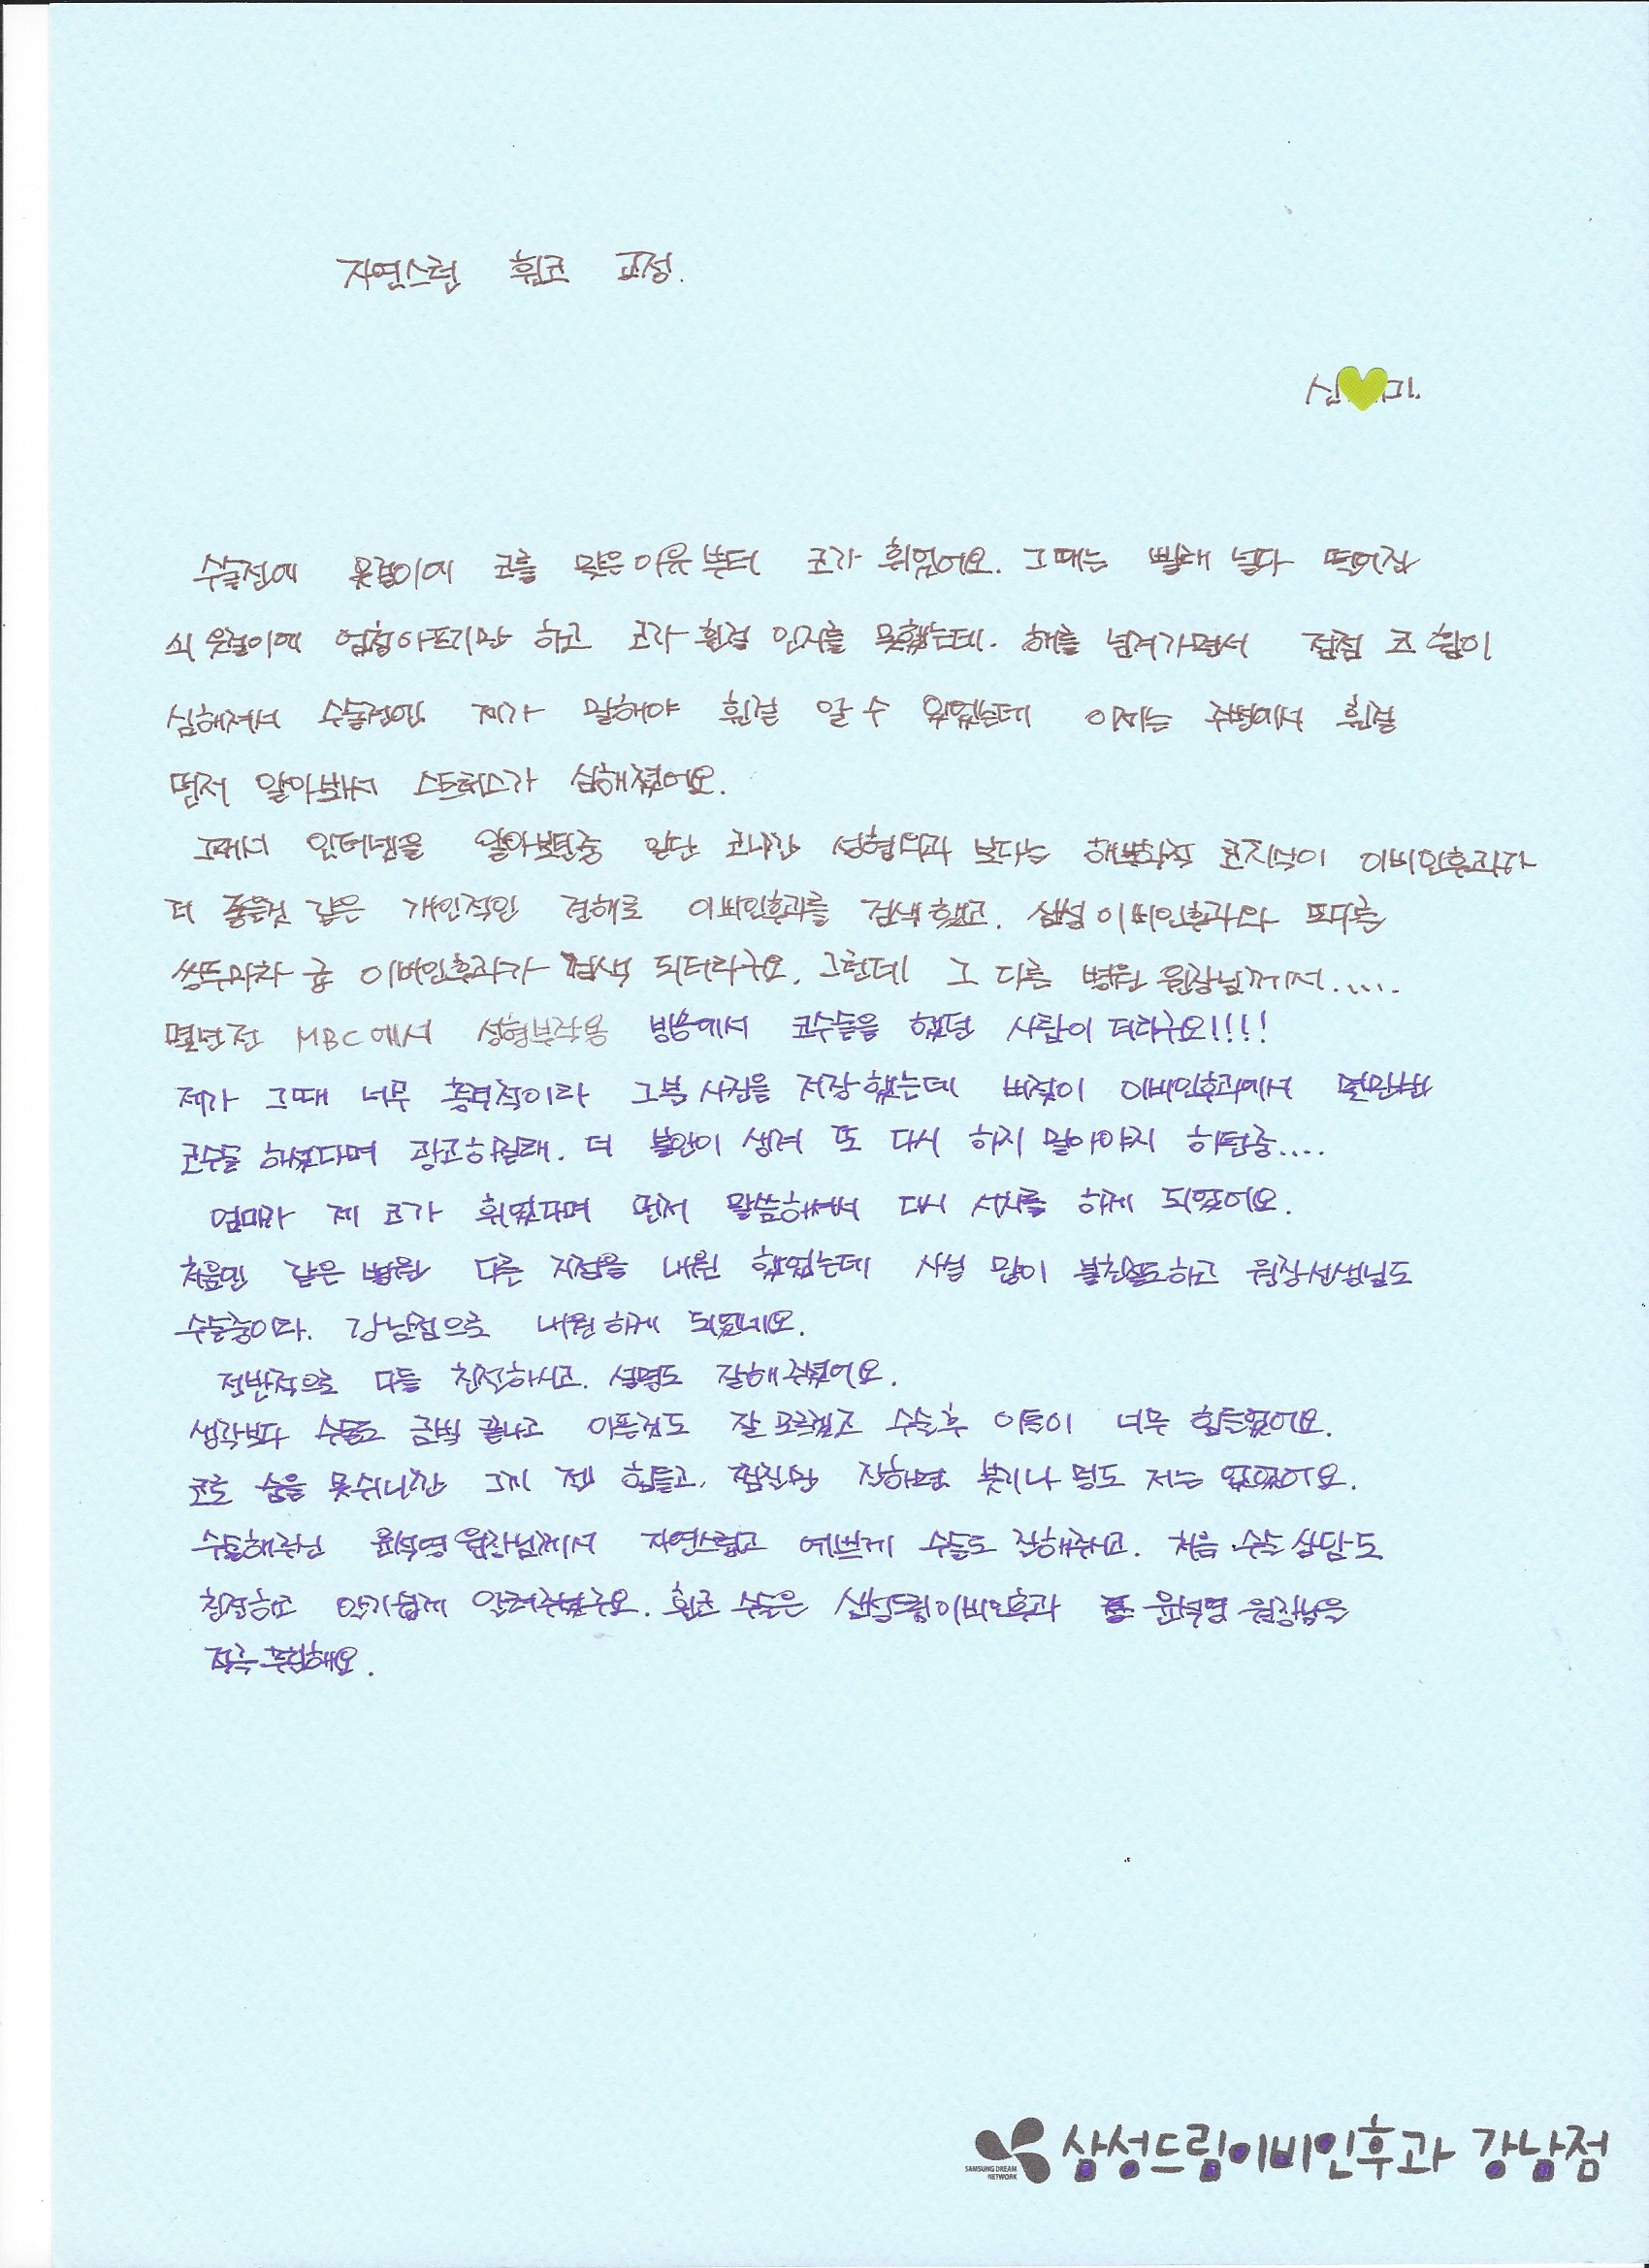 자연스런 휜코 교정.
신 미.
수술전에 옷걸이에 코를 맞은이유부터 코가 휘었어요. 그때는 빨래 널다 떨어진
쇠 옷걸이에 엄청아프기만 하고 코가 휜걸 인지를 못했는데. 해를 넘겨가면서 점점 코 휨이
심해져서 수술전엔 제가 말해야 휜걸 알 수 있었는데 이제는 주변에서 휜걸
먼저 알아봐서 스트레스가 심해졌어요.
그래서 인터넷을 알아보던중 일단 코니깐 성형외과 보다는 해부학적 코지식이 이비인후과가
더 좋을것 같은 개인적인 견해로 이비인후과를 검색했고. 삼성이비인후과와 또다른
쌍두마차 급 이비인후과가 검색 되더라구요. 그런데 그 다른 병원 원장님께서.....
몇년전 MBC에서 성형부작용 방송에서 코수술을 했던 사람이 더라구요!!!!
제가 그때 너무 충격적이라 그분 사진을 저장했는데 버젓이 이비인후과에서 몇만번
코수술 하셨다며 광고하길래. 더 불안이 생겨 또 다시 하지 말아야지 하던중....
엄마가 제 코가 휘었다며 먼저 말씀하셔서 다시 서치를 하게 되었어요.
처음엔 같은 병원 다른 지점을 내원 했었는데 사실 많이 불친절도하고 원장선생님도
수술중이라. 강남점으로 내원하게 되었네요.
전반적으로 다들 친절하시고. 설명도 잘해주셨어요.
생각보다 수술도 금방 끝나고 아픈것도 잘 모르겠고 수술후 이틀이 너무 힘들었어요.
코로 숨을 못쉬니깐 그게 젤 힘들고. 찜질만 잘하면 붓기나 멍도 저는 없었어요.
수술해주신 윤석영 원장님께서 자연스럽고 예쁘게 수술도 잘해주시고. 처음 수술 상담도
친절하고 알기쉽게 알려주셨구요. 휜코 수술은 삼성드림이비인후과 윤석영 원장님을
적극 추천해요.
SAMSUNG DREAM
NETWORK
삼성드림이비인후과 강남점